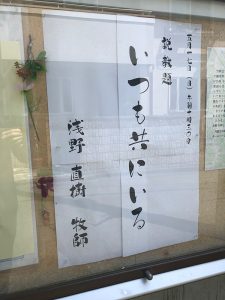 五月一七日（日）午前十時三〇分
説教題
いつも共にいる
浅野 直樹 牧師